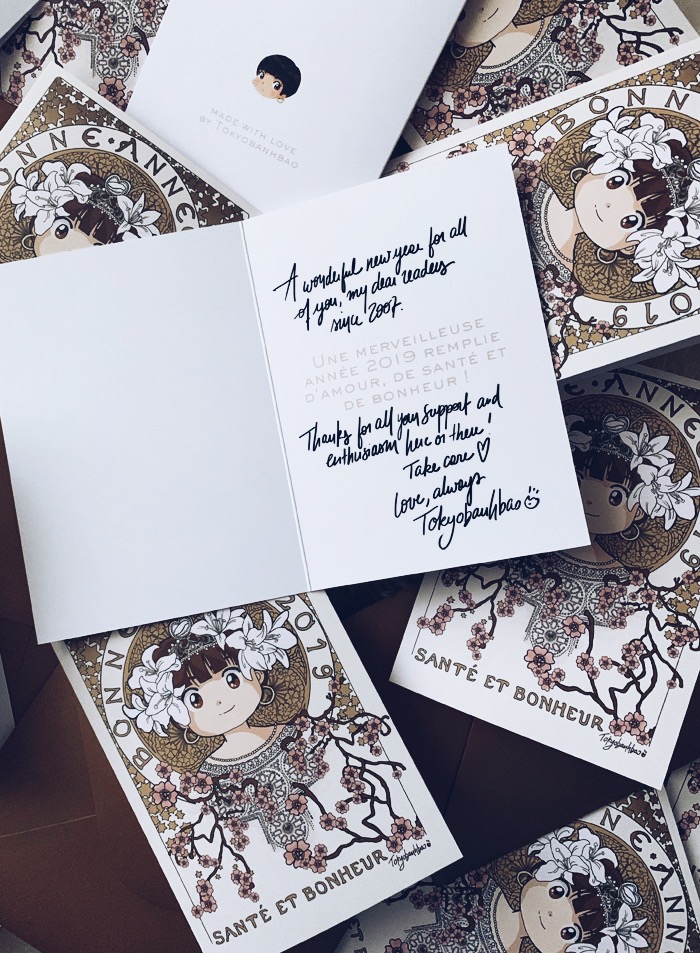 MADE WITH LOVE
BY TOKYOBANHBAO
BONNE • ANNÉE
BONN
2019
A wonderful new year for all
of you, my dear readers
since 2007.
UNE MERVEILLEUSE
ANNÉE 2019 REMPLIE
D'AMOUR, DE SANTÉ ET
DE BONHEUR !
Thanks for all your support and
enthusiasm here or there!
Take care ♡
love, always
Tokyobanhbao
BONNE • ANNÉE
SANTÉ ET BONHEUR
Tokyobanhbao
BONNE
2019
SANTÉ ET BONHEUR
Tokyobanhbao
NNE • ANNÉE